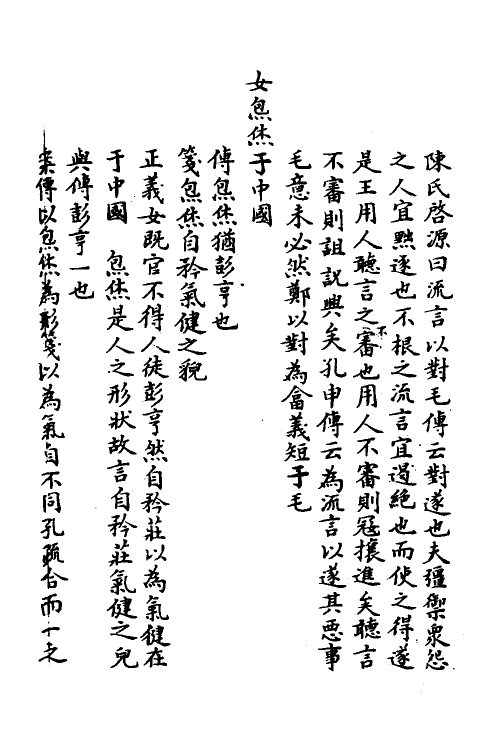 陳氏啓源曰流言以對毛傳云對遂也夫彊禦衆怨
之人宜黜逐也不根之流言宜遏絶也而使之得遂
是王用人聽言之不審也用人不審則寇攘進矣聽言
不審則詛説興矣孔申傳云為流言以遂其惡事
毛意未必然鄭以對為畣義短于毛
女炰烋于中國
傳炰烋猶彭亨也
箋炰烋自矜氣健之貌
正義女既官不得人徒彭亨然自矜莊以為氣健在
于中國　炰烋是人之形状故言自矜莊氣健之皃
與傳彭亨一也
案傳以炰烋為形箋以為氣皃不同孔疏合而一之